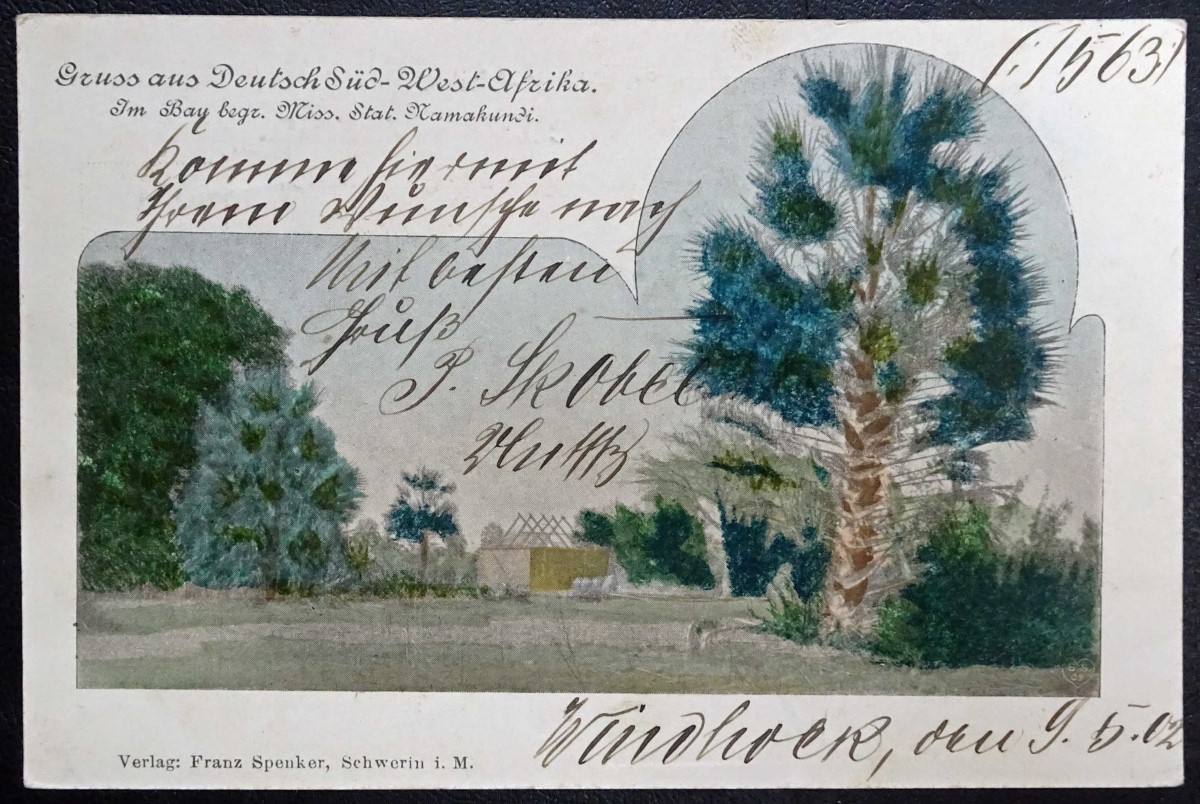 (:1563)
Gruss aus Deutsch Süd-West-Afrika.
Im Bay begr. Miss. Stat. Namakundi.
Komme hiermit
Ihrem Wunsche nach
Mit besten
Gruß
P. Skobel
Windhoek, den 9. 5. 02
Verlag: Franz Spenker, Schwerin i. M.